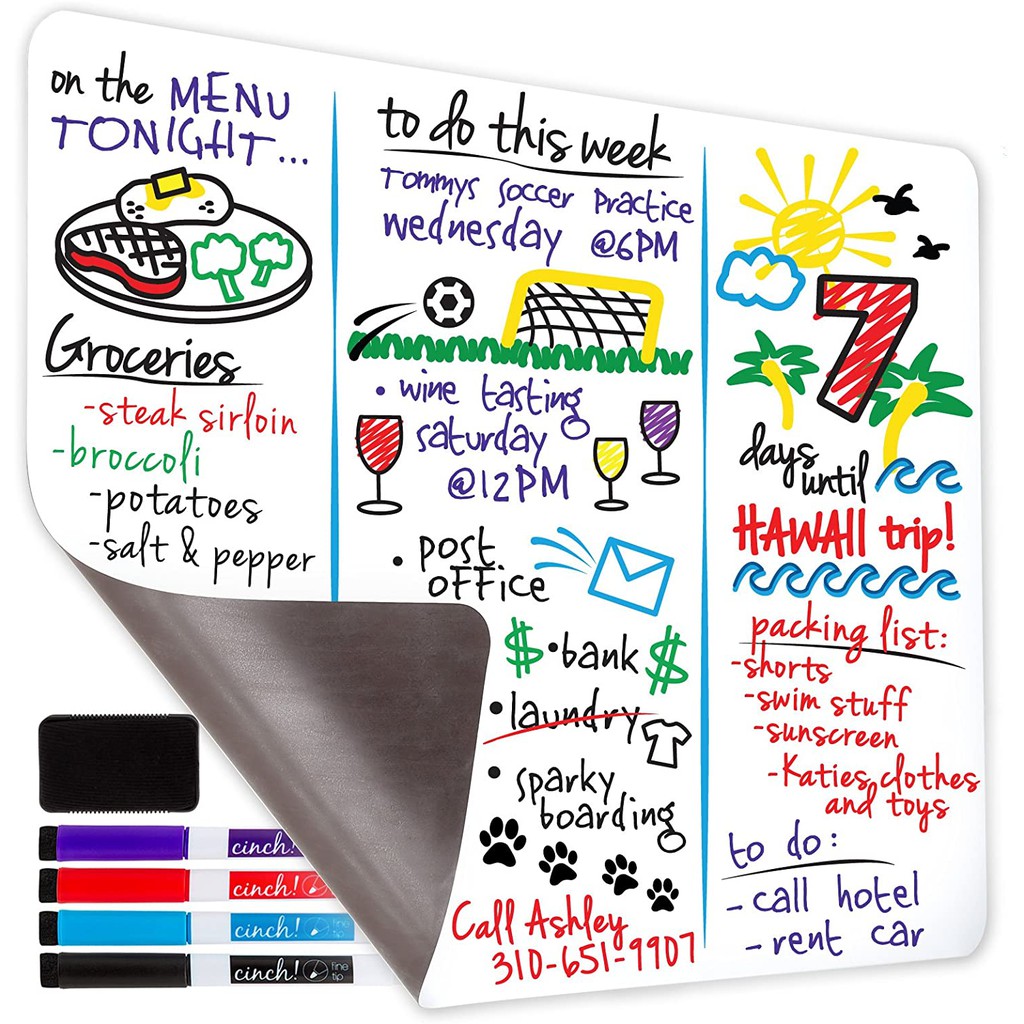 on the MENU
TONIGHT...
Groceries
-steak sirloin
-broccoli
-potatoes
-salt & pepper
to do this week
Tommys soccer Practice
wednesday @6PM
• wine tasting
saturday
@12PM
• post
office
$ •bank $
•laundry
• sparky
boarding
Call Ashley
310-651-9907
7
days
until
HAWAII trip!
packing list:
-shorts
-swim stuff
-sunscreen
-Katies clothes
and toys
to do:
- call hotel
- rent car
cinch!
cinch!
cinch! fine
tip
cinch! fine
tip